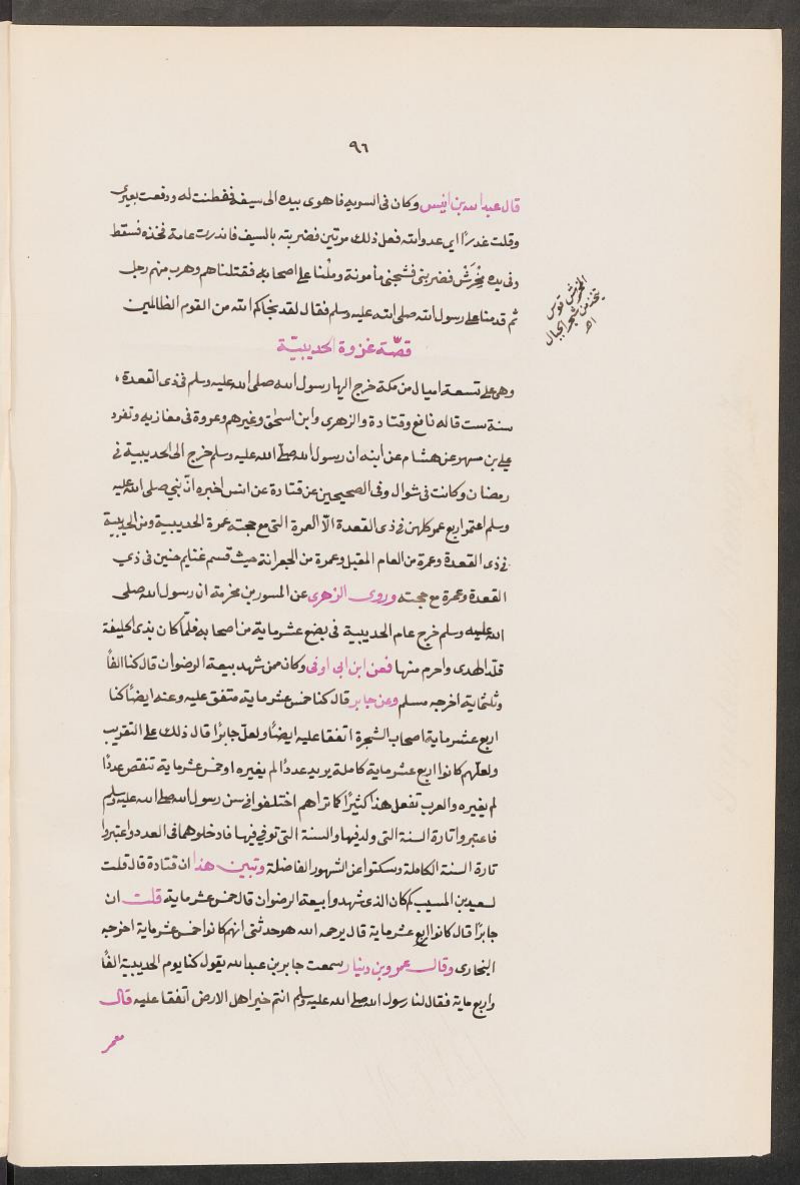 ٩٦
قال عبد الله بن انيس وكان فى السريه فاهوى بيده الى سيفه ففطنت له ودفعت بعيرى
وقلت غدرًا اى عدو الله فعل ذلك مرتين فضربته بالسيف فاندرت عامة فخذه فسقط
وفى يده مِخْرَش فضربنى فشجنى مأمونة وملْنا على اصحابه فقتلناهم وهرب منهم رجل
ثم قدمنا على رسول الله صلى الله عليه وسلم فقال لقد نجاكم الله من القوم الظالمين
المخرش قوس
يتخذ من شجر الجبال
اهـ
قصّة غزوة الحديبيّة
وهى على تسعة اميال من مكة خرج اليها رسول الله صلى الله عليه وسلم فى ذى القعدة،
سنة ست قاله نافع وقتادة والزهرى وابن اسحٰق وغيرهم وعروة فى مغازيه وتفرد
على بن مسهر عن هشام عن ابنه ان رسول الله صلى الله عليه وسلم خرج الى الحديبية فى
رمضان وكانت فى شوال وفى الصحيحين عن قتادة عن انس اخبره انّ نبي صلى الله عليه
وسلم اعتمر اربع عمر كلهن فى ذى القعدة الّا العمرة التى مع حجته عمرة الحديبية ومن الحديبية
فى ذى القعدة وعمرة من العام المقبل وعمرة من الجعرانة حيث قسم غنايم حنين فى ذي
القعدة وعمرة مع حجته وروى الزهرى عن المسور بن مخرمة ان رسول الله صلى
الله عليه وسلم خرج عام الحديبية فى بضع عشر ماية من اصحابه فلمّا كان بذى الحليفة
قلد الهدى واحرم منها فعن ابن ابى اوفى وكان ممن شهد بيعة الرضوان قال كنا الفًا
وثلثماية اخرجه مسلم وعن جابر قال كنا خمس عشر ماية متفق عليه وعنه ايضًا كنا
اربع عشر ماية اصحاب الشجرة اتفقا عليه ايضًا ولعلّ جابرًا قال ذلك على التقريب
ولعلهم كانوا اربع عشر ماية كاملة يريد عددًا لم يغيره او خمس عشر ماية تنقص عددًا
لم يغيره والعرب تفعل هذا كثيرًا كما تراهم اختلفوا فى سن رسول الله صلى الله عليه وسلم
فاعتبروا تارة السنة التى ولد فيها والسنة التى توفي فيها فادخلوهما فى العدد واعتبروا
تارة السنة الكاملة وسكتوا عن الشهور الفاضلة وتبين هذا ان قتادة قال قلت
لسعيد بن المسيب كم كان الذى شهدوا بيعة الرضوان قال خمس عشر ماية قلت ان
جابرًا قال كانوا اربع عشر ماية قال يرحمه الله هو حدثنى انهم كانوا خمس عشر ماية اخرجه
البخارى وقال عمرو بن دينار سمعت جابر بن عبد الله يقول كنا يوم الحديبية الفًا
واربع ماية فقال لنا رسول الله صلى الله عليه وسلم انتم خير اهل الارض اتفقا عليه قال
معمر